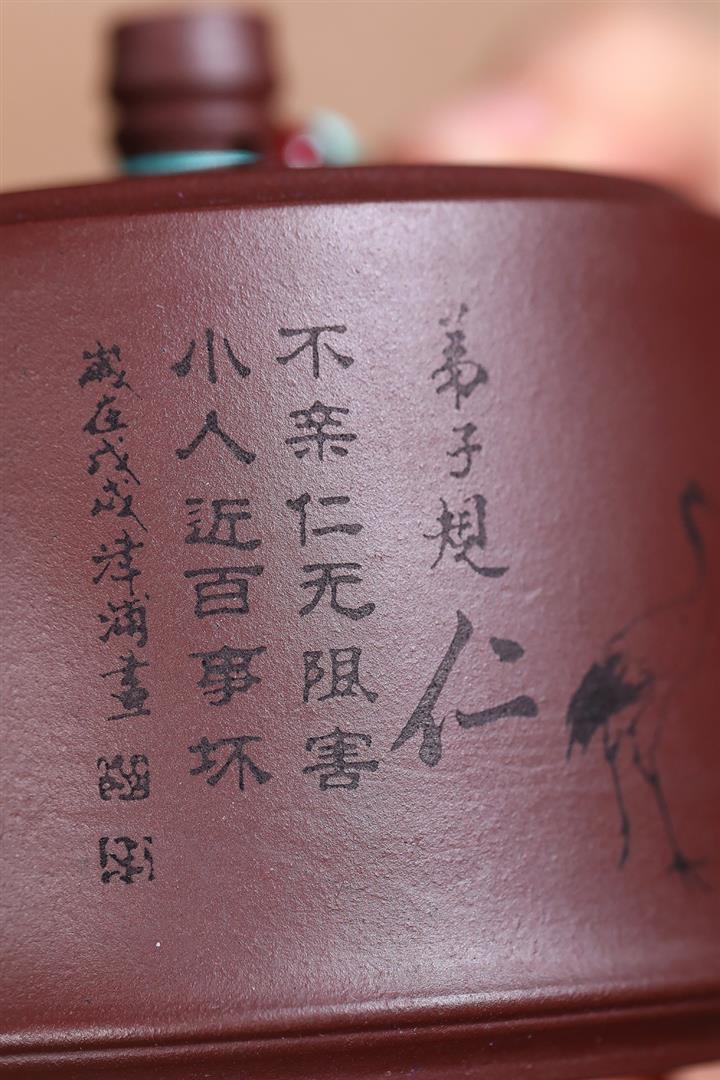 弟子规
仁
不亲仁无限害
小人近百事坏
岁在戊戌津浦画